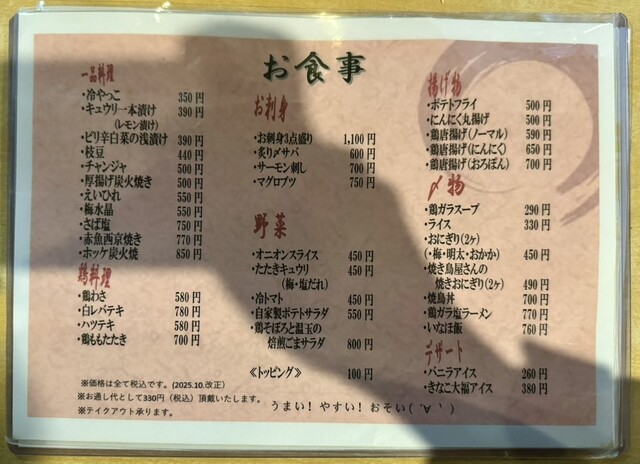 お食事
一品料理
・冷やっこ 350円
・キュウリ一本漬け 390円
(レモン漬け)
・ピリ辛白菜の浅漬け 390円
・枝豆 440円
・チャンジャ 500円
・厚揚げ炭火焼き 500円
・えいひれ 550円
・梅水晶 550円
・さば塩 750円
・赤魚西京焼き 770円
・ホッケ炭火焼 850円
鶏料理
・鶏わさ 580円
・白レバテキ 780円
・ハツテキ 580円
・鶏ももたたき 700円
※価格は全て税込です。(2025.10.改正)
※お通し代として330円(税込)頂戴いたします。
※テイクアウト承ります。
お刺身
・お刺身3点盛り 1,100円
・炙り〆サバ 600円
・サーモン刺し 700円
・マグロブツ 750円
野菜
・オニオンスライス 450円
・たたきキュウリ 450円
(梅・塩だれ)
・冷トマト 450円
・自家製ポテトサラダ 550円
・鶏そぼろと温玉の
焙煎ごまサラダ 800円
≪トッピング≫ 100円
うまい! やすい! おそい( ´∀｀)
揚げ物
・ポテトフライ 500円
・にんにく丸揚げ 500円
・鶏唐揚げ(ノーマル) 590円
・鶏唐揚げ(にんにく) 650円
・鶏唐揚げ(おろポン) 700円
〆物
・鶏ガラスープ 290円
・ライス 330円
・おにぎり(2ヶ)
(・梅・明太・おかか) 450円
・焼き鳥屋さんの
焼きおにぎり(2ヶ) 490円
・焼鳥丼 700円
・鶏ガラ塩ラーメン 770円
・いなほ飯 760円
デザート
・バニラアイス 260円
・きなこ大福アイス 380円